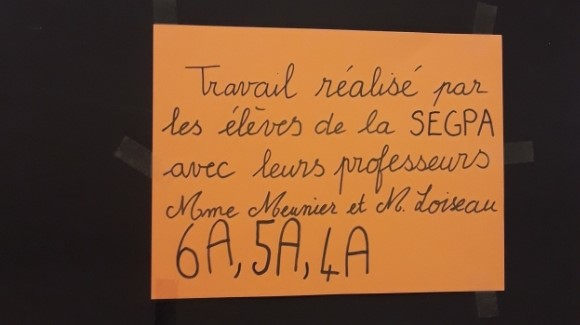 Travail réalisé par
les élèves de la SEGPA
avec leurs professeurs
Mme Meunier et M. Loiseau
6A, 5A, 4A